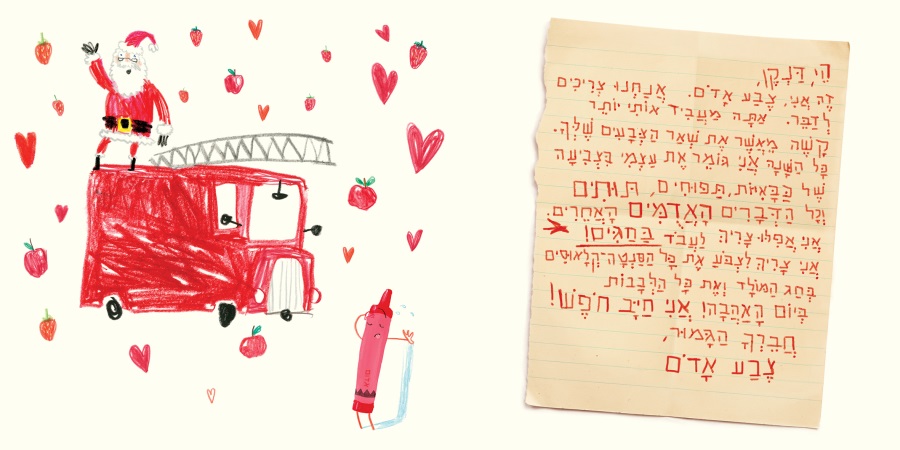 הֵי, דַּנְקָן,
זֶה אֲנִי, צֶבַע אָדֹם. אֲנַחְנוּ צְרִיכִים
לְדַבֵּר. אַתָּה מַעֲבִיד אוֹתִי יוֹתֵר
קָשֶׁה מֵאֲשֶׁר אֶת שְׁאַר הַצְּבָעִים שֶׁלְּךָ.
כָּל הַשָּׁנָה אֲנִי גּוֹמֵר אֶת עַצְמִי בִּצְבִיעָה
שֶׁל כַּבָּאִיּוֹת, תַּפּוּחִים, תּוּתִים
וְכָל הַדְּבָרִים הָאֲדֻמִּים הָאֲחֵרִים.
אֲנִי אֲפִלּוּ צָרִיךְ לַעֲבֹד בַּחַגִּים!
אֲנִי צָרִיךְ לִצְבֹּעַ אֶת כָּל הַסַּנְטָה-קְלָאוּסִים
בְּחַג הַמּוֹלָד וְאֶת כָּל הַלְּבָבוֹת
בְּיוֹם הָאַהֲבָה! אֲנִי חַיָּב חֹפֶשׁ!
חֲבֵרְךָ הַגָּמוּר,
צֶבַע אָדֹם